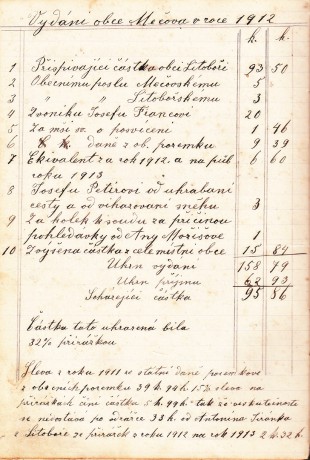 Vydání obce Mečova v roce 1912
k. h.
1 Přispívající částka obci Litoboři 93 50
2 Obecnímu poslu Mečovskému 5
3 " " Litoborskému 3
4 Zvoníku Josefu Francovi 20
5 Za mši sv. o posvícení 1 46
6 daně z ob. pozemku 9 39
7 Ekvivalent za rok 1912 a na půl 6 60
roku 1913
8 Josefu Petirovi od uhrabání
cesty a od vihazovaní sněhu 3
9 Za kolek k soudu za příčinou
pohledávky od Any 1
10 Zvýšena částka z celé místní obce 15 84
Uhrn vydání 158 79
Uhrn příjmu 62 93
Scházející částka 95 86
Částka tato uhrazená bila
32% přirážkou
Sleva z roku 1911 ze statní daně pozemkove
z obecních pozemku 39 k. 94 h. 15% sleva na
přirážkách činí částka 5 k. 99 h. tak že ve skutečnosti
se nedostává po 33 h. od Antonína
z Litoboře ze přirážek z roku 1912 na rok 1913 2 k. 32 h.